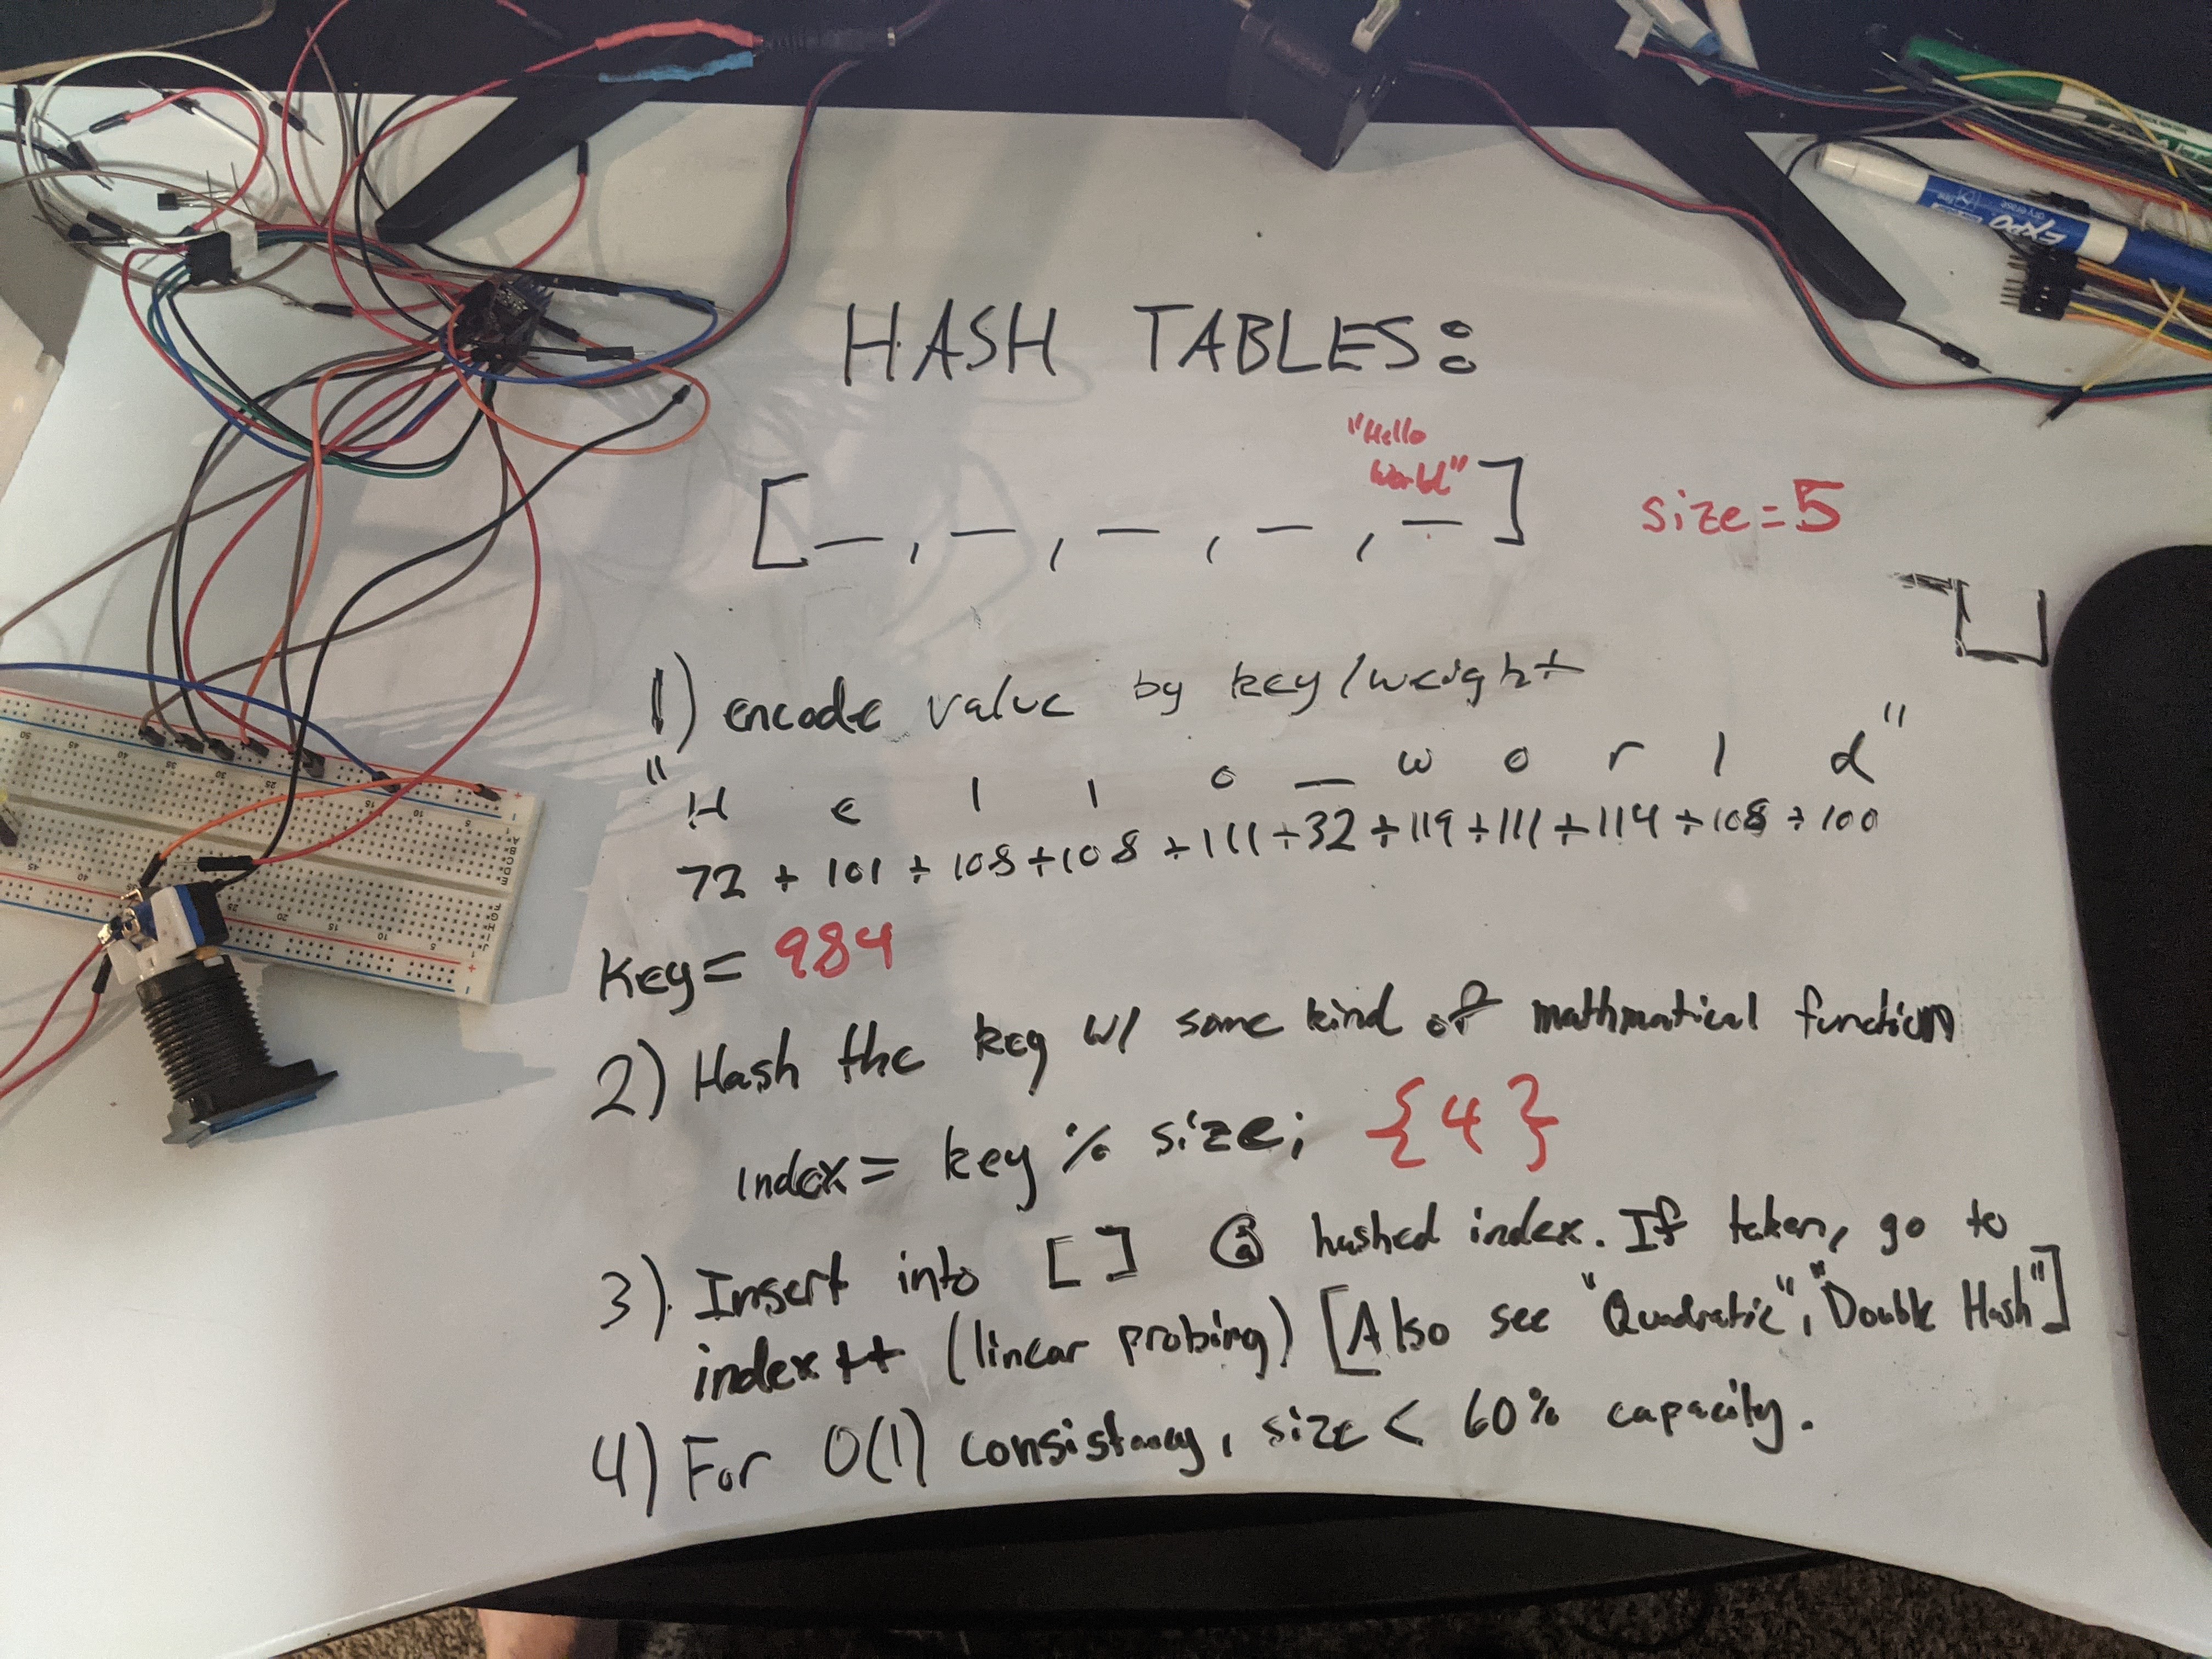 HASH TABLES:
"Hello
World"
[_, _, _, _, _]
size=5
1) encode value by key/weight
"H e l l o _ w o r l d"
72 + 101 + 108 + 108 + 111 + 32 + 119 + 111 + 114 + 108 + 100
Key= 984
2) Hash the key w/ some kind of mathmatical function
index= key % size; {4}
3) Insert into [ ] @ hashed index. If taken, go to
index++ (linear probing) [Also see "Quadratic", "Double Hash"]
4) For O(1) consistancy, size < 60% capacity.
EXPO
dry erase